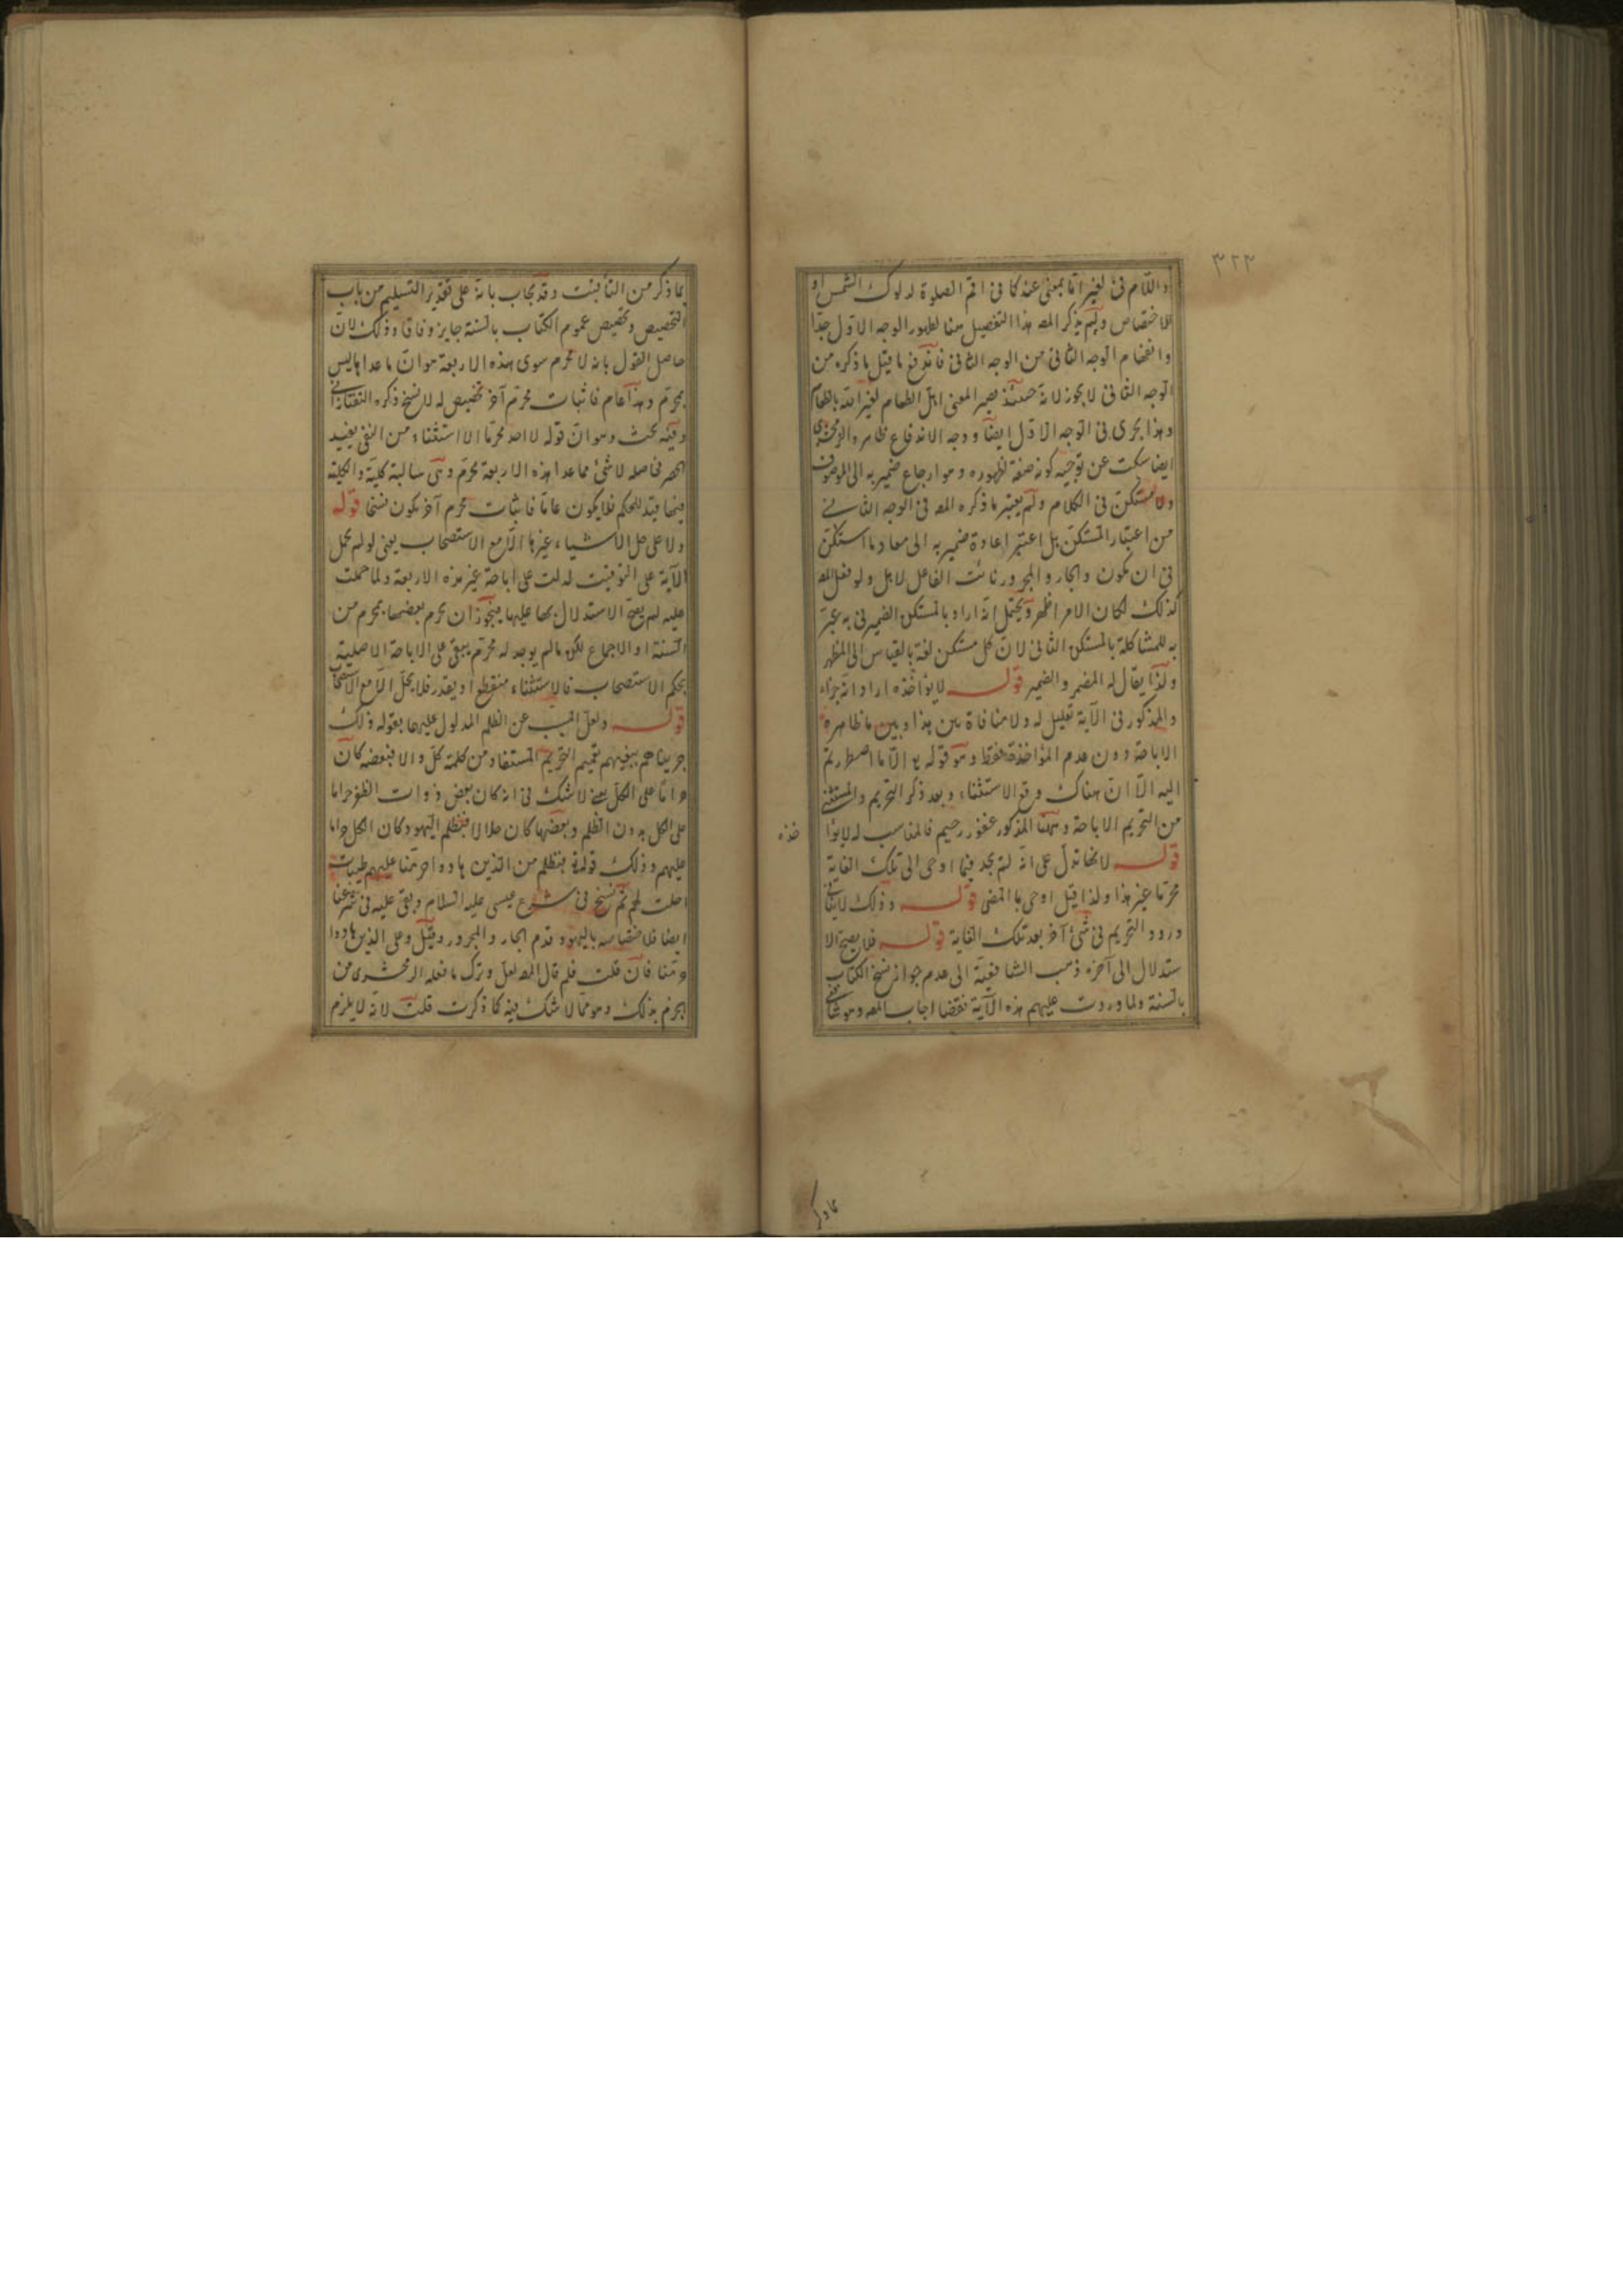 ٣٢٣
واللام فى لغير اما بمعنى عند كما فى اقم الصلوة لدلوك الشمس او
للاختصاص ولم يذكر المصـ هذا التفصيل هنا لظهور الوجه الاول جدا
وانفهام الوجه الثانى من الوجه الثانى فاندفع ما قيل ما ذكره من
الوجه الثانى لا يجوز لانه حينئذ يصير المعنى اهل الطعام لغير الله بالطعام
وهذا يجرى فى الوجه الاول ايضا ووجه الاندفاع ظاهر والزمخشرى
ايضا سكت عن توجيه كونه صفة لظهوره وهو ارجاع ضمير به الى الموصوف
ولا مستكن فى الكلام ولم يعتبر ما ذكره المصـ فى الوجه الثانى
من اعتبار المستكن بل اعتبر اعادة ضمير به الى معاد ما استكن
فى ان يكون والجار والمجرور نائب الفاعل لاهل ولو فعل المصـ
كذلك لكان الامر اظهر ويحتمل انه اراد بالمستكن الضمير فى به عبر
به للمشاكلة بالمستكن الثانى لان كل مستكن لغة بالقياس الى المظهر
ولذا يقال له المضمر والضمير قوله لا يؤاخذه اراد انه جزاء
والمذكور فى الآية تعليل له ولا منافاة بين هذا وبين ما ظاهره
الاباحة دون عدم المؤاخذة فقط وهو قوله يو الا ما اضطررتم
اليه الا ان هناك وقع الاستثناء وبعد ذكر التحريم والمستثنى
من التحريم الاباحة وههنا المذكور غفور رحيم فالمناسب له لا يؤا
خذه
قوله لانها تدل على انه لم يجد فيما اوحى الى تلك الغاية
محرما غير هذا ولذا قيل اوحى بالمضى قوله وذلك لا ينافى
ورود التحريم فى شئ آخر بعد تلك الغاية قوله فلا يصح الا
ستدلال الى آخره ذهب الشافعية الى عدم جواز نسخ الكتاب
بالسنة ولما وردت عليهم هذه الآية نقضا اجاب المصـ وهو شافعى
بما ذكر
بما ذكر من التأقيت وقد يجاب بانه على تقدير التسليم من باب
التخصيص وتخصيص عموم الكتاب بالسنة جايز وفاقا وذلك لان
حاصل القول بانه لا محرم سوى هذه الاربعة هو ان ما عداها ليس
بمحرم وهذا عام فاثبات محرم آخر تخصيص له لا نسخ ذكره التفتازانى
وفيه بحث وهو ان قوله لا اجد محرما الا استثناء ومن النفى يفيد
الحصر فحاصله لا شئ مما عدا هذه الاربعة بمحرم وهى سالبة كلية والكلية
فيها قيد للحكم فلا يكون عاما فاثبات محرم آخر يكون نسخا قوله
ولا على حل الاشياء غيرها الا مع الاستصحاب يعنى لو لم يحمل
الآية على التوقيت لدلت على اباحة غير هذه الاربعة ولما حملت
عليه لم يصح الاستدلال بها عليها فيجوز ان يحرم بعضها بمحرم من
السنة او الاجماع لكن ما لم يوجد له محرم يبقى على الاباحة الاصلية
بحكم الاستصحاب فالاستثناء منقطع او يقدر فلا يحل الا مع الاستصحاب
قوله ولعل المسبب عن الظلم المدلول عليها بقوله ذلك
جزيناهم ببغيهم تعميم التحريم المستفاد من كلمة كل والا فبعضه كان
حراما على الكل يعنى لا شك فى انه كان بعض ذوات الظفر حراما
على الكل بدون الظلم وبعضها كان حلالا فبظلم اليهود كان الكل حراما
عليهم وذلك قوله فبظلم من الذين هادوا حرمنا عليهم طيبات
احلت لهم ثم نسخ فى شرع عيسى عليه السلام وبقى عليه فى شرعنا
ايضا فلاختصاصه باليهود قدم الجار والمجرور وقيل وعلى الذين هادوا
حرمنا فان قلت فلم قال المصـ لعل وترك ما فعله الزمخشرى من
الجزم بذلك وهو مما لا شك فيه كما ذكرت قلت لانه لا يلزم